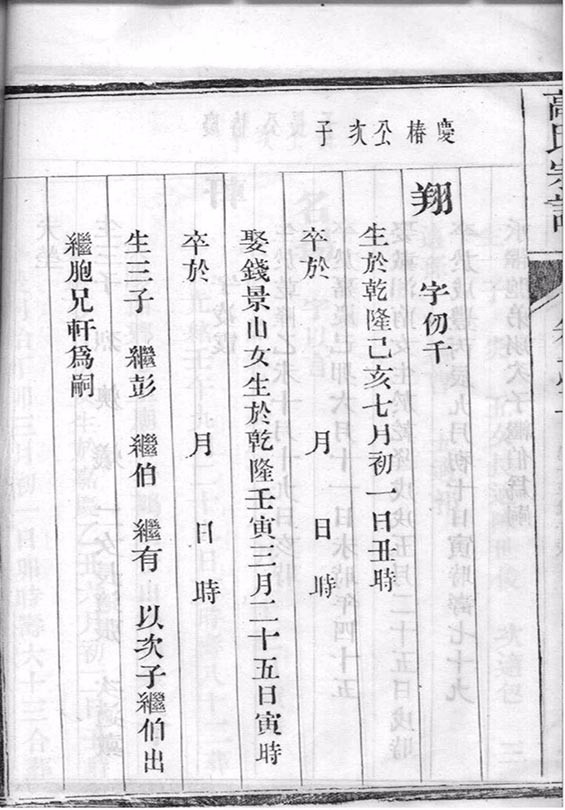 高氏宗譜
慶椿公次子
翔 字仞千
生於乾隆己亥七月初一日丑時
卒於 月 日 時
娶錢景山女生於乾隆壬寅三月二十五日寅時
卒於 月 日 時
生三子 繼彭 繼伯 繼有 以次子繼伯出
繼胞兄軒為嗣